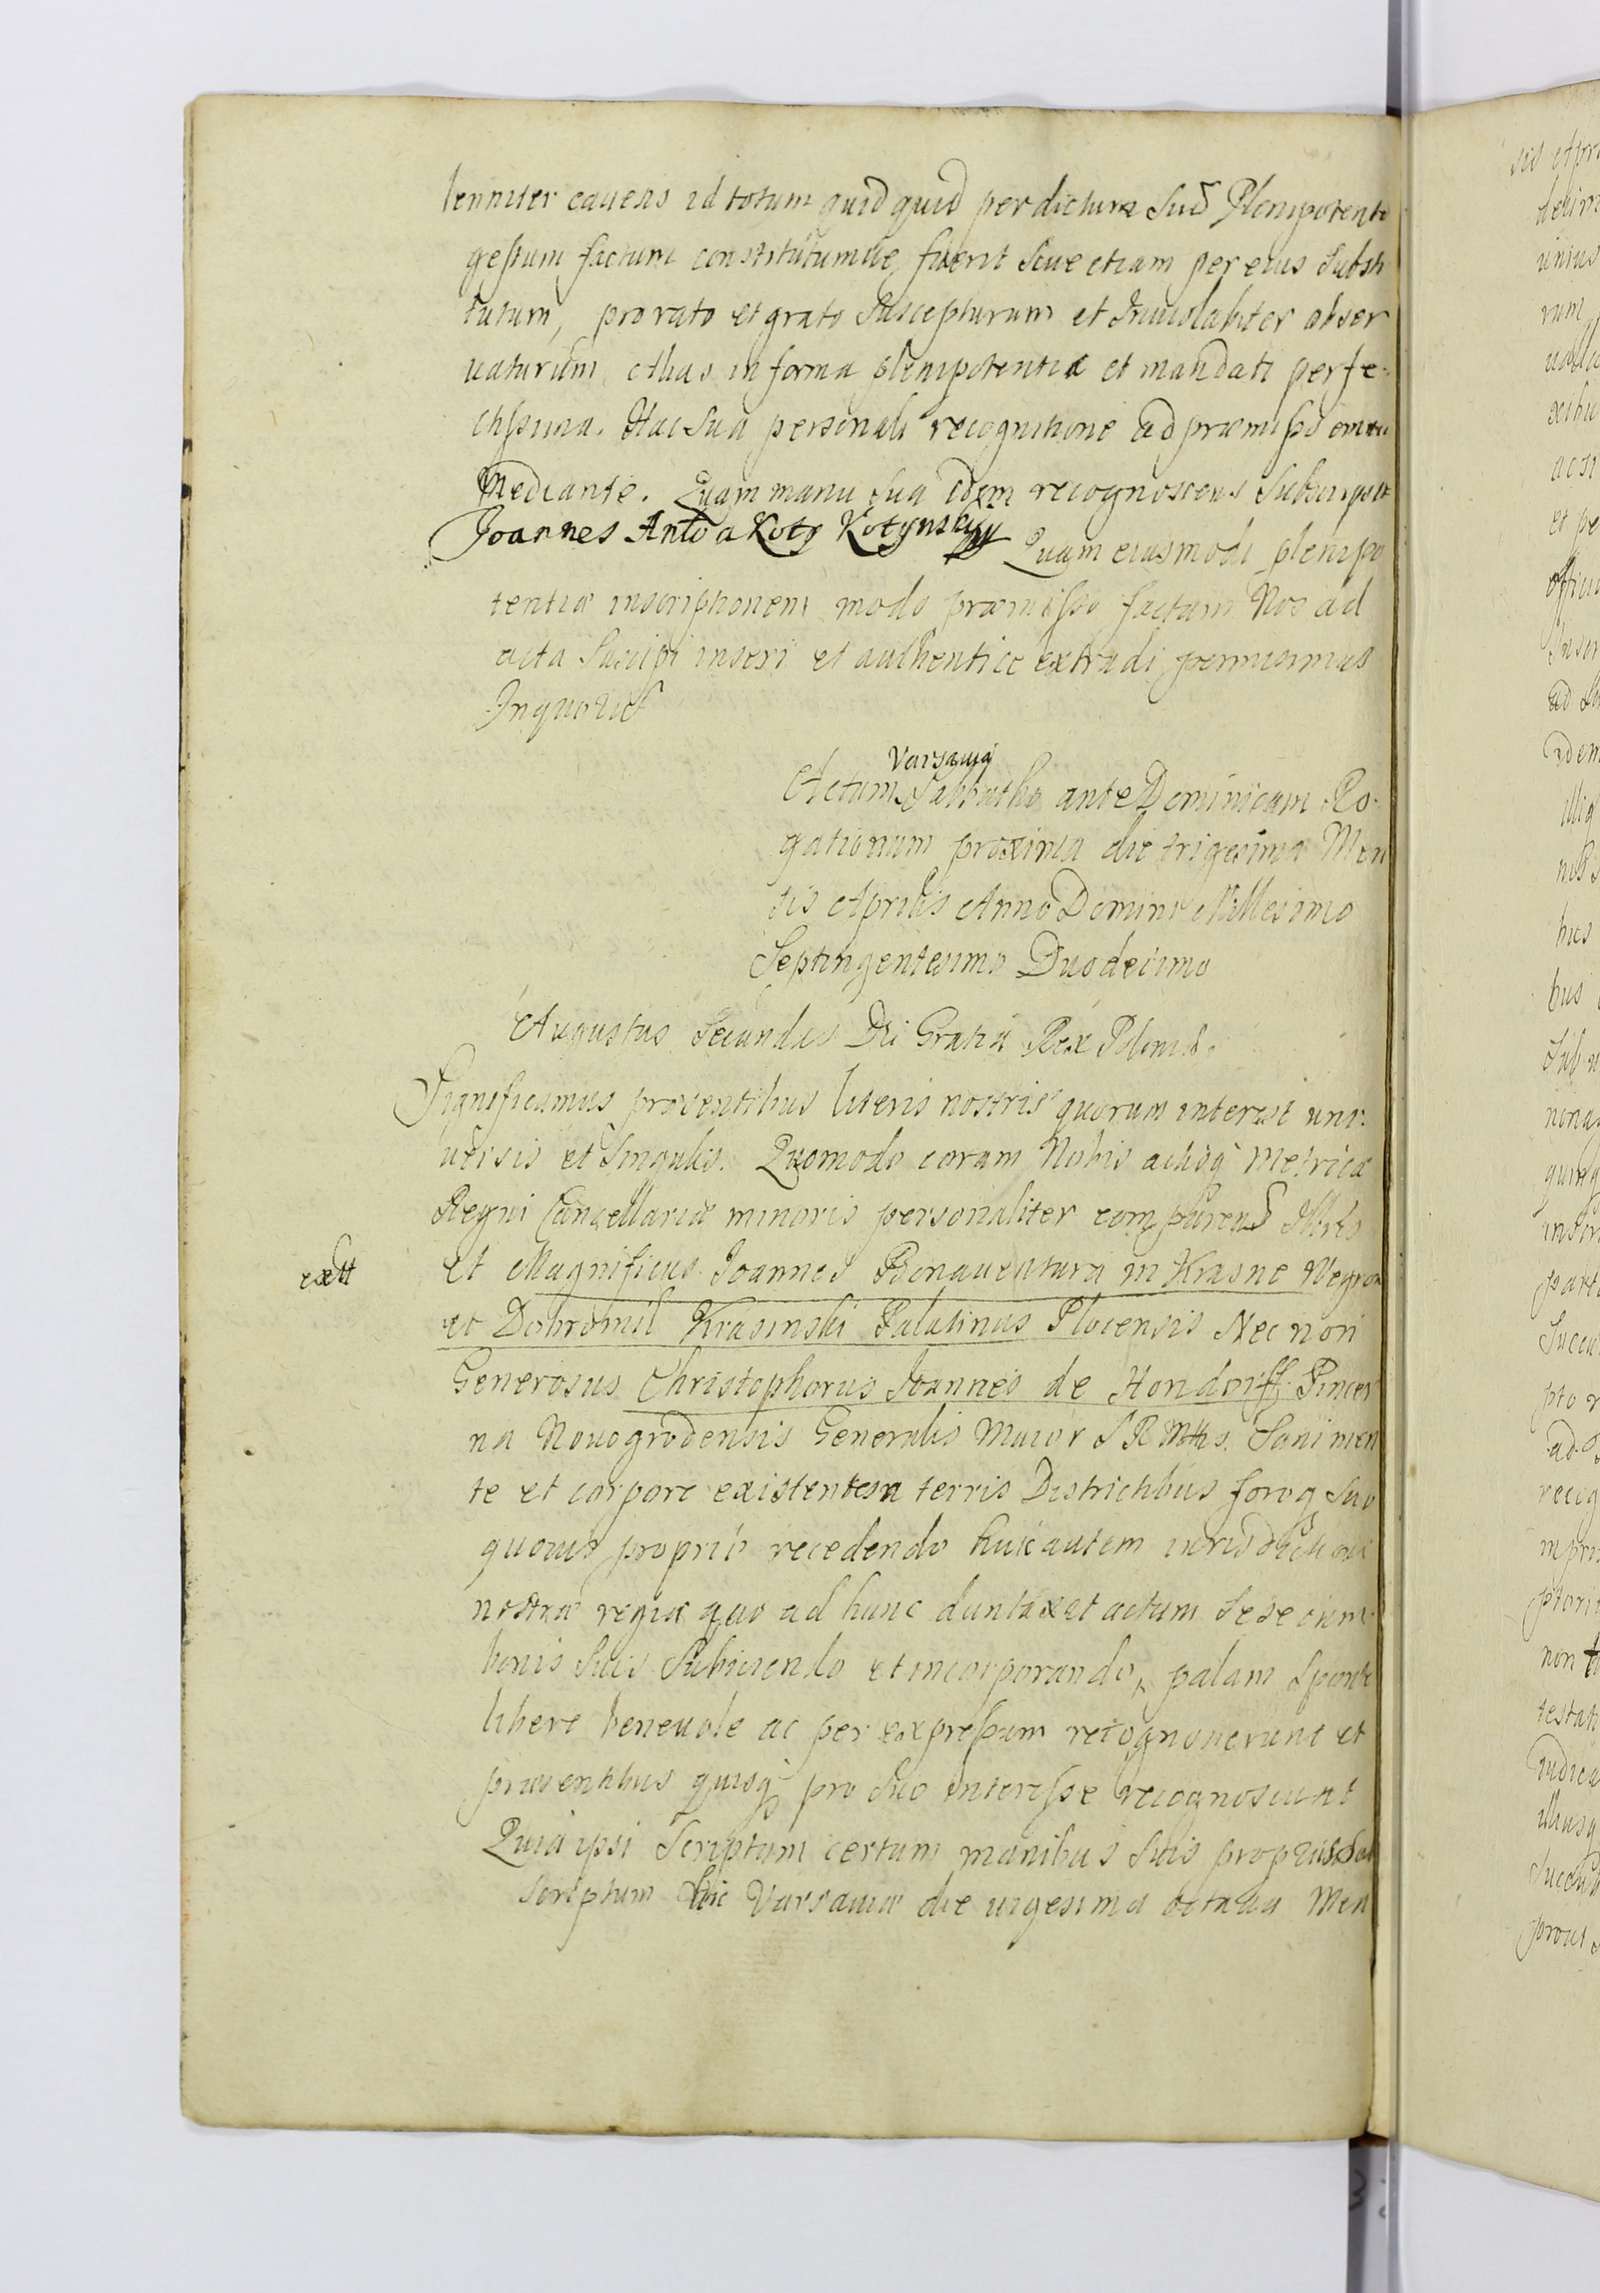 lenniter cavens id totum quid quid per dictum suū Plenipotentē
gestum factum constitutumve fuerit sive etiam per eius substi
tutum, pro rato et grato suscepturum et inviolabiter obser
vaturum. Alias in forma plenipotentiæ et mandati perfe-
ctissima. Hac sua personali recognitione ad præmissa omnia
mediante. Quam manu sua idem recognoscens subscripsit
Joannes Anto a Koty Kotynskiy Quam eiusmodi plenipo
tentiæ inscriptionem modo præmisso factam Nos ad
acta suscipi inseri et authentice extradi permisimus
In quo rei
Varsaviæ
Actum Sabbatho ante Dominicam Ro-
gationum proxima die trigesima Men
sis Aprilis Anno Domini Millesimo
Septingentesimo Duodecimo
Augustus Secundus Dei Gratia Rex Poloniæ.
Significamus præsentibus literis nostris quorum interest uni-
versis et singulis. Quomodo coram Nobis actisq Metricæ
Regni Cancellariæ minoris personaliter comparens Illtris
extt
et Magnificus Joannes Bonaventura in Krasne Wegrow
et Dobromil Krasinski Palatinus Plocensis Nec non
Generosus Christophorus Joannes de Hondorff Pincer
na Novogrodensis Generalis Maior S R Mttis. Sani men
te et corpore existentem terris Districtibus foroq suo
quovis proprio recedendo huic autem iurisdictioni
nostræ regiæ quo ad hunc duntaxat actum sese cum
bonis suis subiiciendo et incorporando, palam sponte
libere benevole ac per expressum recognoverunt et
præsentibus quisq pro suo interesse recognoscunt
Quia ipsi Scriptum certum manibus suis propriis sub
scriptum hic Varsaviæ die vigesima octava Men